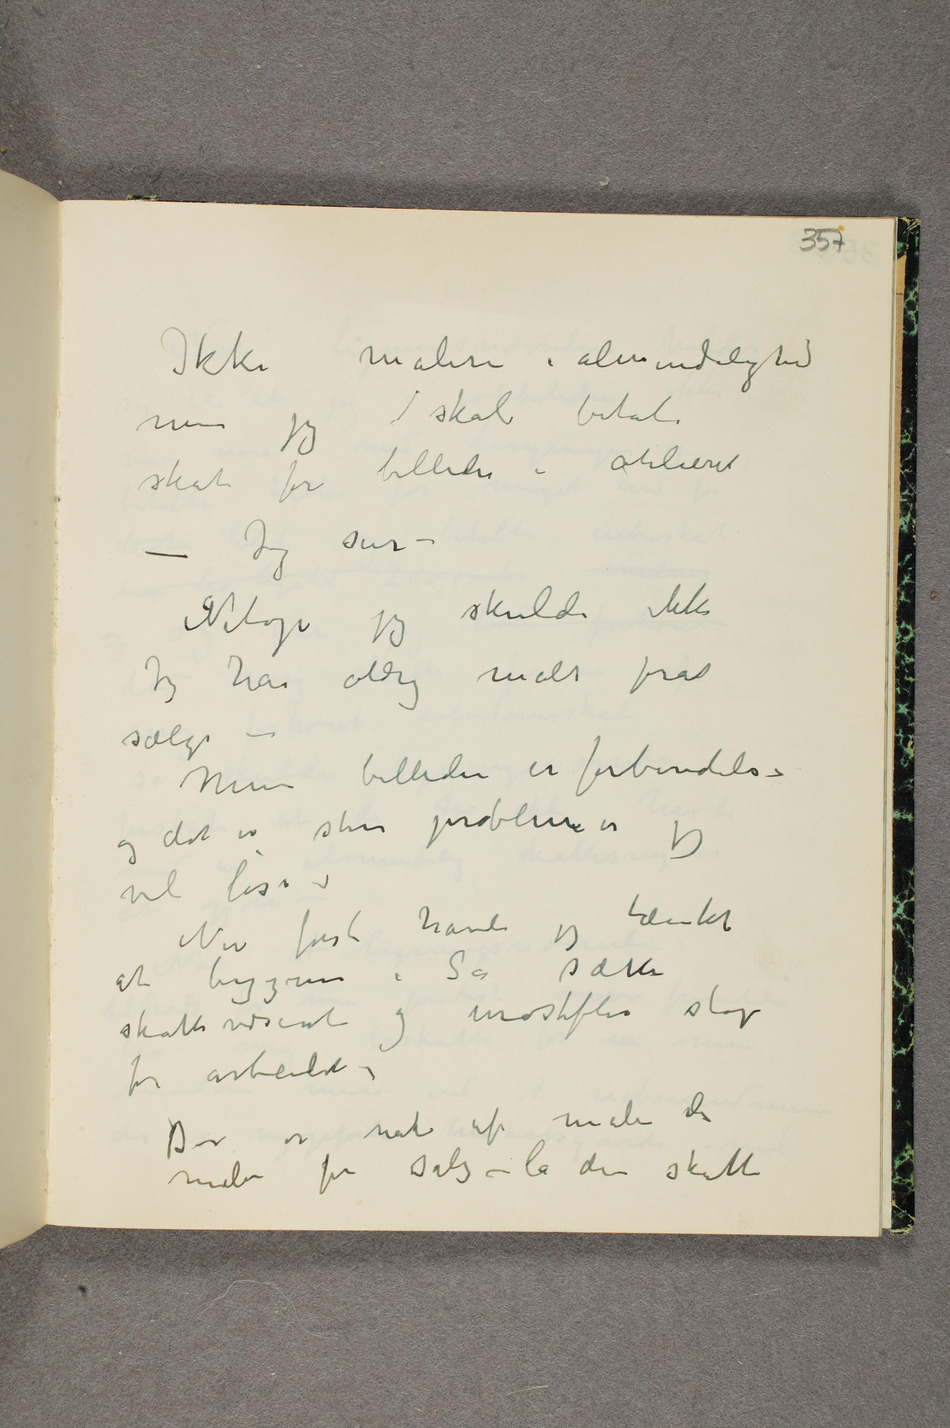 357
Ikke malere i almindelighed
men jeg / skal betale
skat for billeder i atelieret
— Jeg sier –
Netop jeg skulde ikke
Jeg har aldrig malt forat
sælge –
Mine billeder er forbindelse –
og det er store problemer jeg
vil løse –
Nu først havde jeg tænkt
at begynne i Så sætter
skattevæsenet og stop
for arbeidet –
Der er nok af malere der
maler for salg – la dem skatte